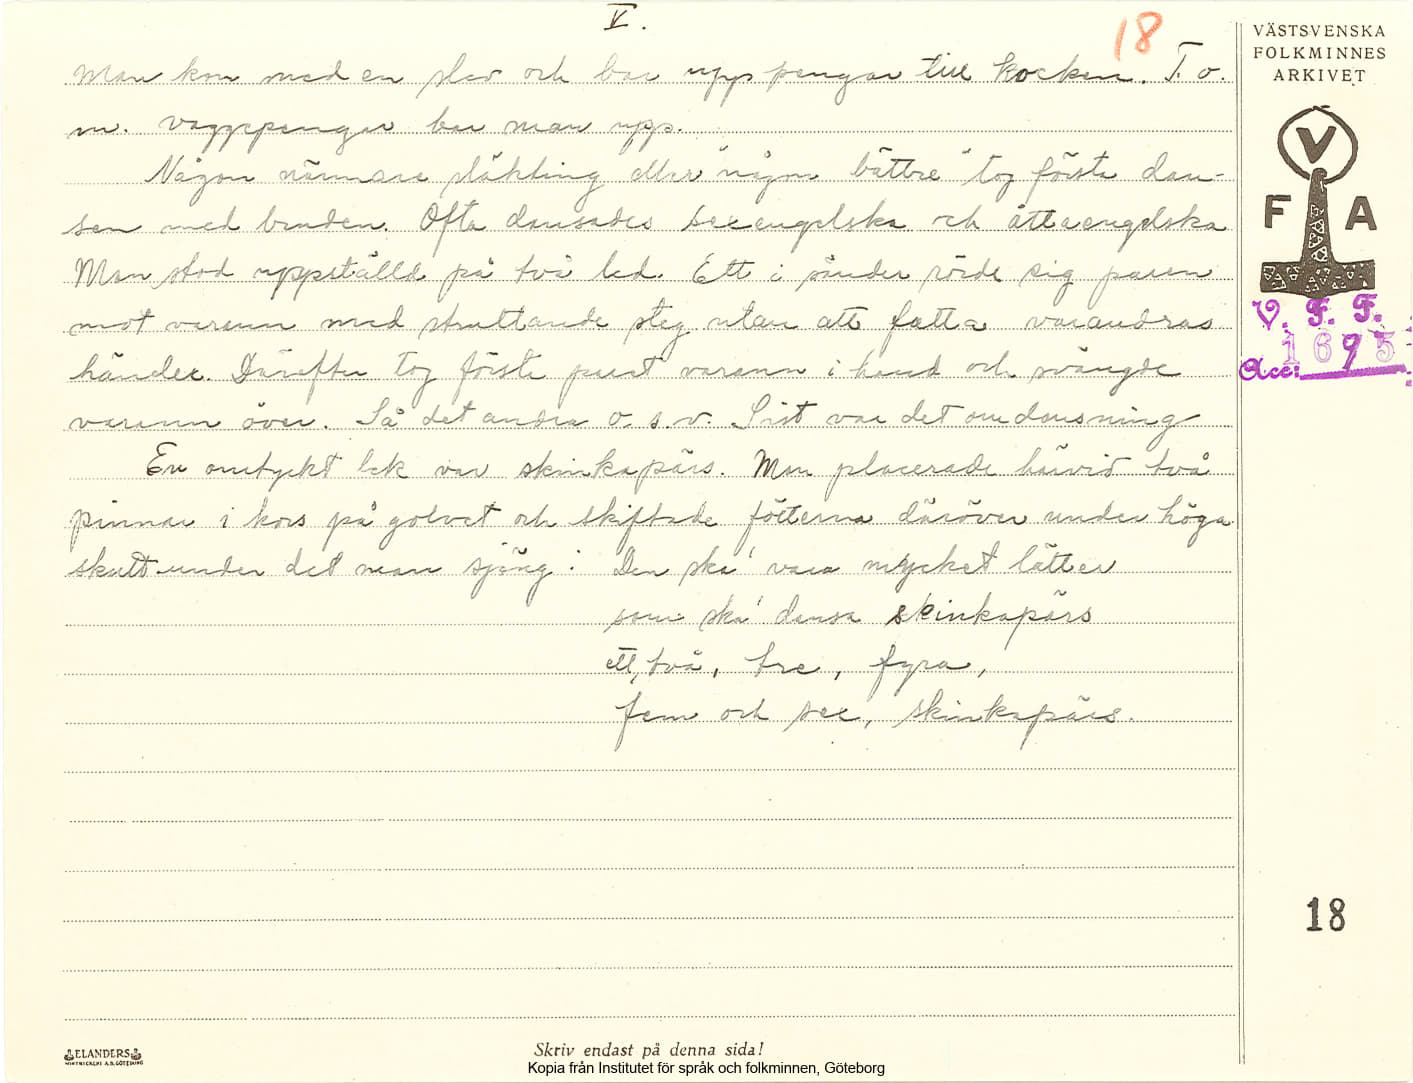 V.
18
VÄSTSVENSKA
FOLKMINNES
ARKIVET
V
F A
V. F. F.
1695
Acc:
Man kom med en slev och bar upp pengar till kocken. T. o.
m. vaggpengar bar man upp.
Någon närmare släkting eller "någon bättre" tog första dan-
sen med bruden. Ofta dansades sexengelska och åttaengelska
Man stod uppställd på två led. Ett i sänder rörde sig paren
mot varann med struttande steg utan att fatta varandras
händer. Därefter tog första paret varann i hand och svängde
varann över. Så det andra o. s. v. Sist var det omdansning
En omtyckt lek var skinkapärs. Man placerade härvid två
pinnar i kors på golvet och skiftade fötterna däröver under höga
skutt under det man sjöng: Den ska' vara mycket lätter
som ska' dansa skinkapärs
ett, två, tre, fyra,
fem och sex, skinkapärs.
18
ELANDERS
Skriv endast på denna sida!
Kopia från Institutet för språk och folkminnen, Göteborg